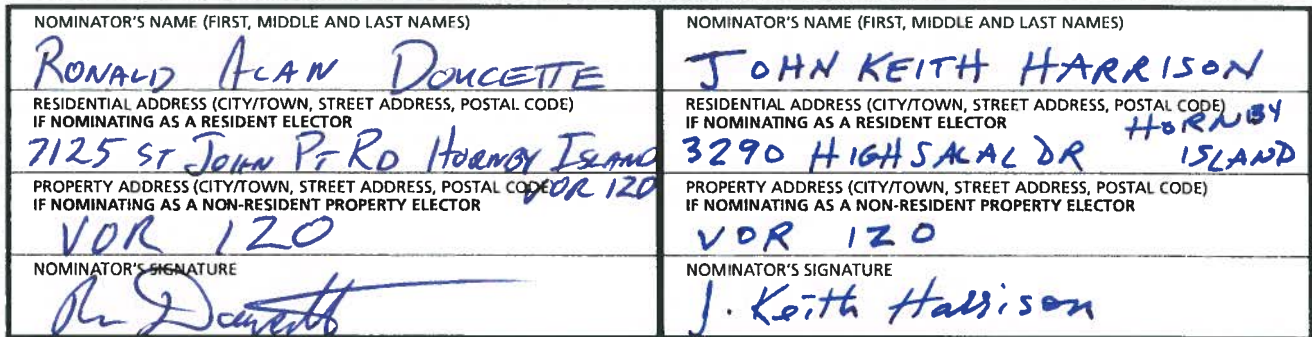 NOMINATOR'S NAME (FIRST, MIDDLE AND LAST NAMES)
RONALD ALAN DOUCETTE
RESIDENTIAL ADDRESS (CITY/TOWN, STREET ADDRESS, POSTAL CODE)
IF NOMINATING AS A RESIDENT ELECTOR
7125 ST JOHN PT RD HORNBY ISLAND
V0R 1Z0
PROPERTY ADDRESS (CITY/TOWN, STREET ADDRESS, POSTAL CODE)
IF NOMINATING AS A NON-RESIDENT PROPERTY ELECTOR
V0R 1Z0
NOMINATOR'S SIGNATURE
NOMINATOR'S NAME (FIRST, MIDDLE AND LAST NAMES)
JOHN KEITH HARRISON
RESIDENTIAL ADDRESS (CITY/TOWN, STREET ADDRESS, POSTAL CODE)
IF NOMINATING AS A RESIDENT ELECTOR
HORNBY
3290 HIGHSALAL DR ISLAND
PROPERTY ADDRESS (CITY/TOWN, STREET ADDRESS, POSTAL CODE)
IF NOMINATING AS A NON-RESIDENT PROPERTY ELECTOR
V0R 1Z0
NOMINATOR'S SIGNATURE
J. Keith Harrison